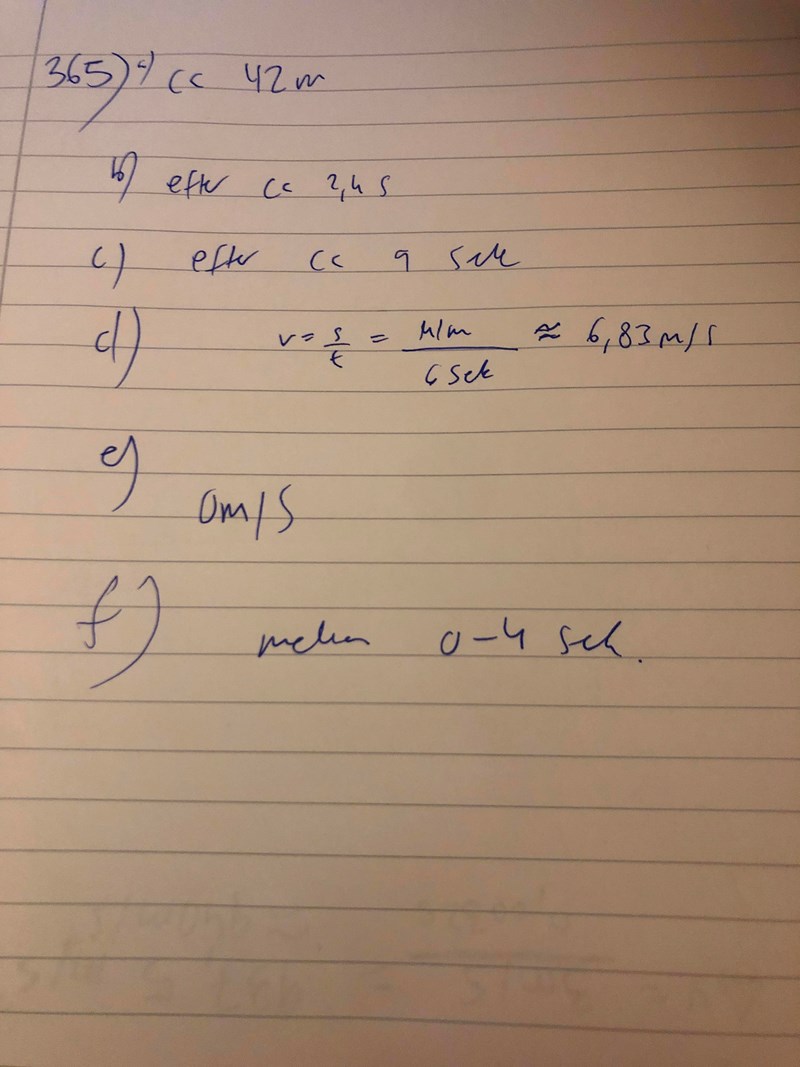 365) a) ca 42 m
b) efter ca 2,4 s
c) efter ca 9 sek
d) v = s/t = 41m / 6 sek ≈ 6,83 m/s
e)
0m/s
f) mellan 0-4 sek.